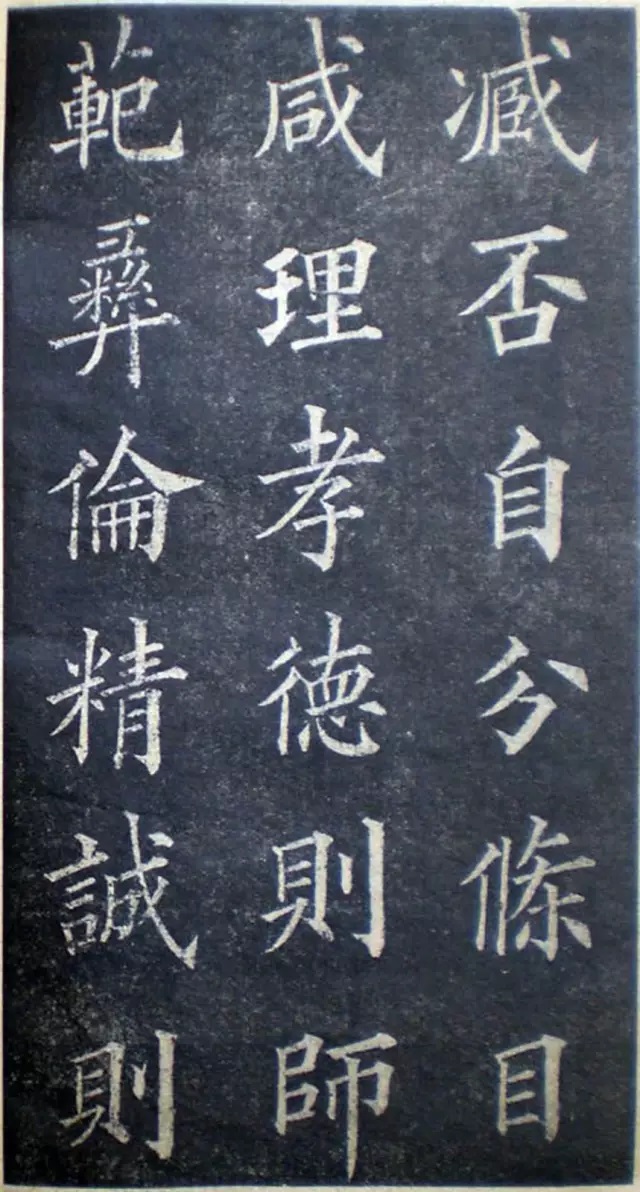 臧否自分條目
咸理孝德則師
範彝倫精誠則